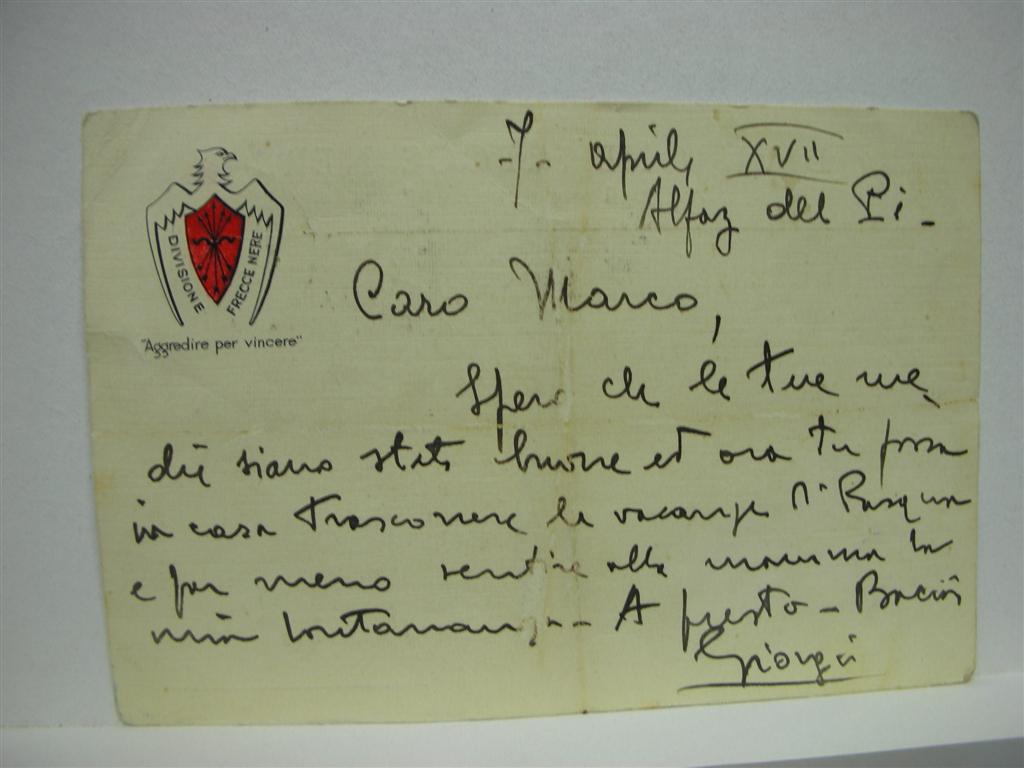 DIVISIONE FRECCE NERE
"Aggredire per vincere"
-7- aprile XVII
Alfaz del Pi -
Caro Marco,
Spero che le tue me-
die siano state buone ed ora tu possa
in casa trascorrere le vacanze di Pasqua
e far meno sentire alla mamma la
mia lontananza - A presto - Bacioni